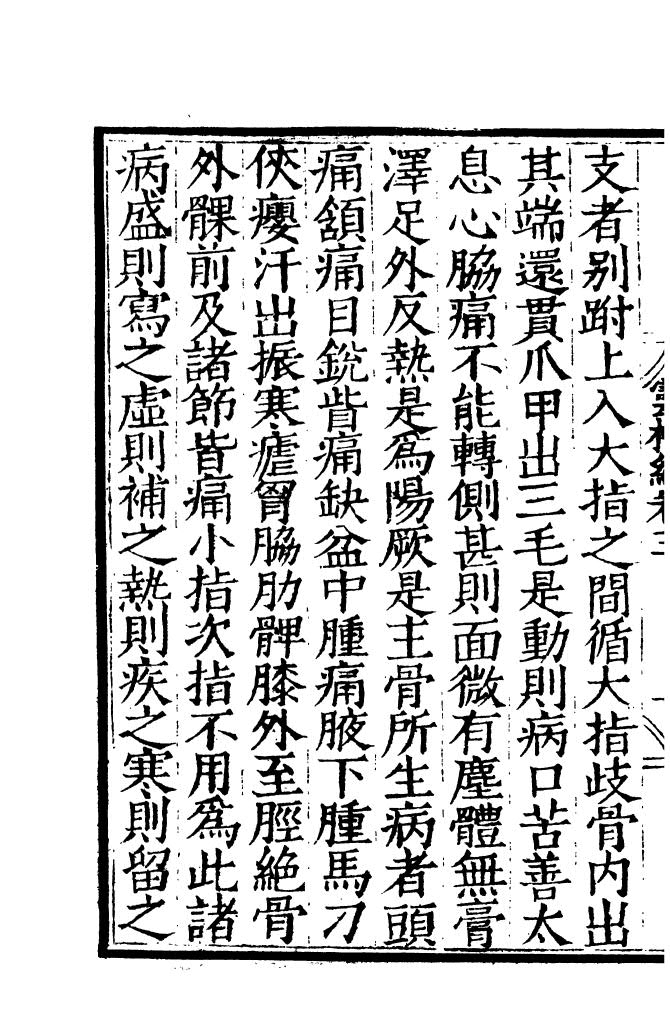 支者别跗上入大指之間循大指歧骨内出
其端還貫爪甲出三毛是動則病口苦善太
息心脇痛不能轉側甚則面微有塵體無膏
澤足外反熱是爲陽厥是主骨所生病者頭
痛頷痛目銳眥痛缺盆中腫痛腋下腫馬刀
俠癭汗出振寒瘧胷脇肋髀膝外至脛絶骨
外髁前及諸節皆痛小指次指不用爲此諸
病盛則寫之虛則補之熱則疾之寒則留之